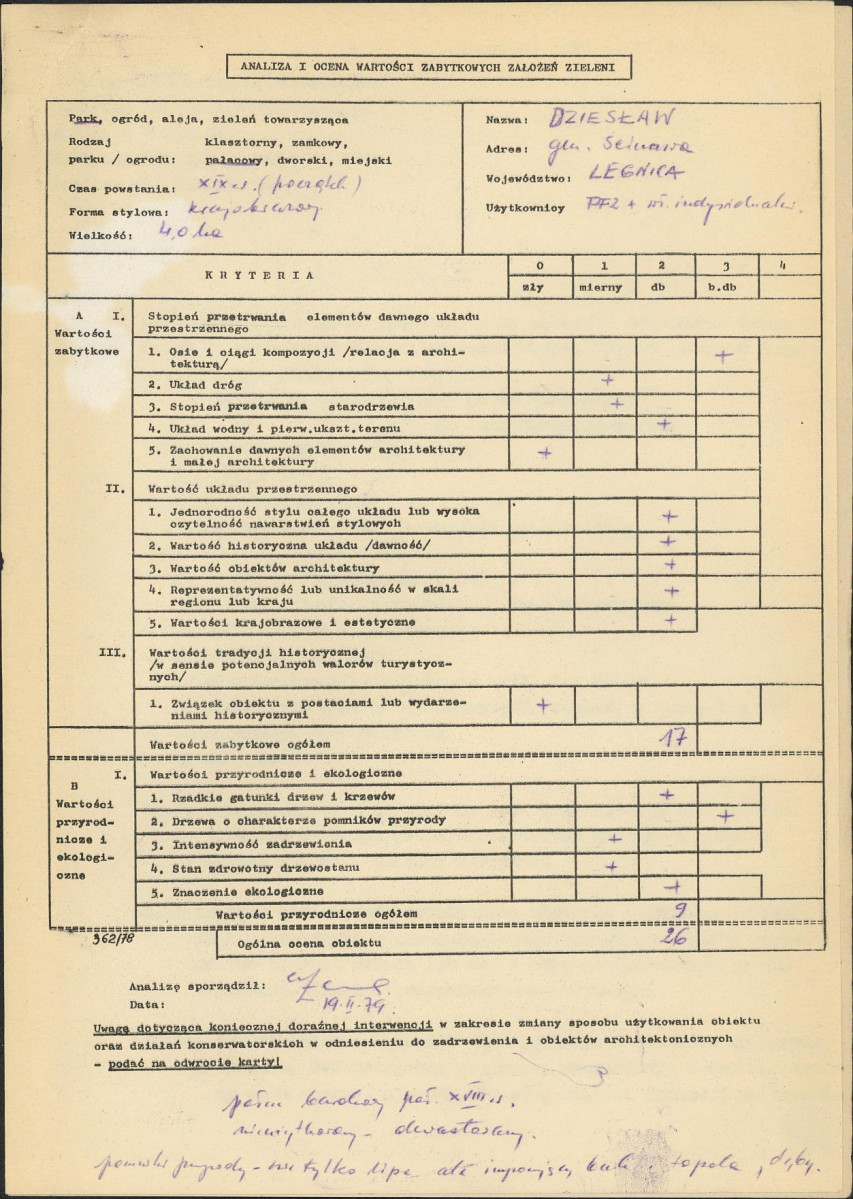 ANALIZA I OCENA WARTOŚCI ZABYTKOWYCH ZAŁOŻEŃ ZIELENI
Park, ogród, aleja, zieleń towarzysząca
Rodzaj klasztorny, zamkowy,
parku / ogrodu: pałacowy, dworski, miejski
Czas powstania: XIX w. (początek)
Forma stylowa: krajobrazowy
Wielkość: 4,0 ha
Nazwa: DZIESŁAW
Adres: gm. Ścinawa
Województwo: LEGNICA
Użytkownicy PFZ + wł. indywidualni.
KRYTERIA
0 1 2 3 4
zły mierny db b.db
A I. Stopień przetrwania elementów dawnego układu
przestrzennego
Wartości
zabytkowe
1. Osie i ciągi kompozycji /relacja z archi-
tekturą/ +
2. Układ dróg +
3. Stopień przetrwania starodrzewia +
4. Układ wodny i pierw.ukszt.terenu +
5. Zachowanie dawnych elementów architektury
i małej architektury +
II. Wartość układu przestrzennego
1. Jednorodność stylu całego układu lub wysoka
czytelność nawarstwień stylowych +
2. Wartość historyczna układu /dawność/ +
3. Wartość obiektów architektury +
4. Reprezentatywność lub unikalność w skali
regionu lub kraju +
5. Wartości krajobrazowe i estetyczne +
III. Wartości tradycji historycznej
/w sensie potencjalnych walorów turystycz-
nych/
1. Związek obiektu z postaciami lub wydarze-
niami historycznymi +
Wartości zabytkowe ogółem 17
B I. Wartości przyrodnicze i ekologiczne
Wartości
przyrod-
nicze i
ekologi-
czne
1. Rzadkie gatunki drzew i krzewów +
2. Drzewa o charakterze pomników przyrody +
3. Intensywność zadrzewienia +
4. Stan zdrowotny drzewostanu +
5. Znaczenie ekologiczne +
Wartości przyrodnicze ogółem 9
362/78 Ogólna ocena obiektu 26
Analizę sporządził:
Data: 19.II.79.
Uwagę dotycząca koniecznej doraźnej interwencji w zakresie zmiany sposobu użytkowania obiektu
oraz działań konserwatorskich w odniesieniu do zadrzewienia i obiektów architektonicznych
- podać na odwrocie karty!
późno barokowy poł. XVIII w.
pomniki przyrody - nie tylko lipa ale topola, dęby.